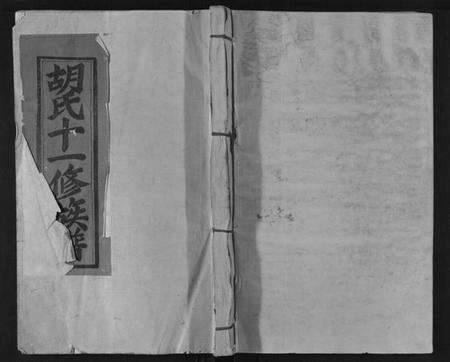 胡氏十一修族譜